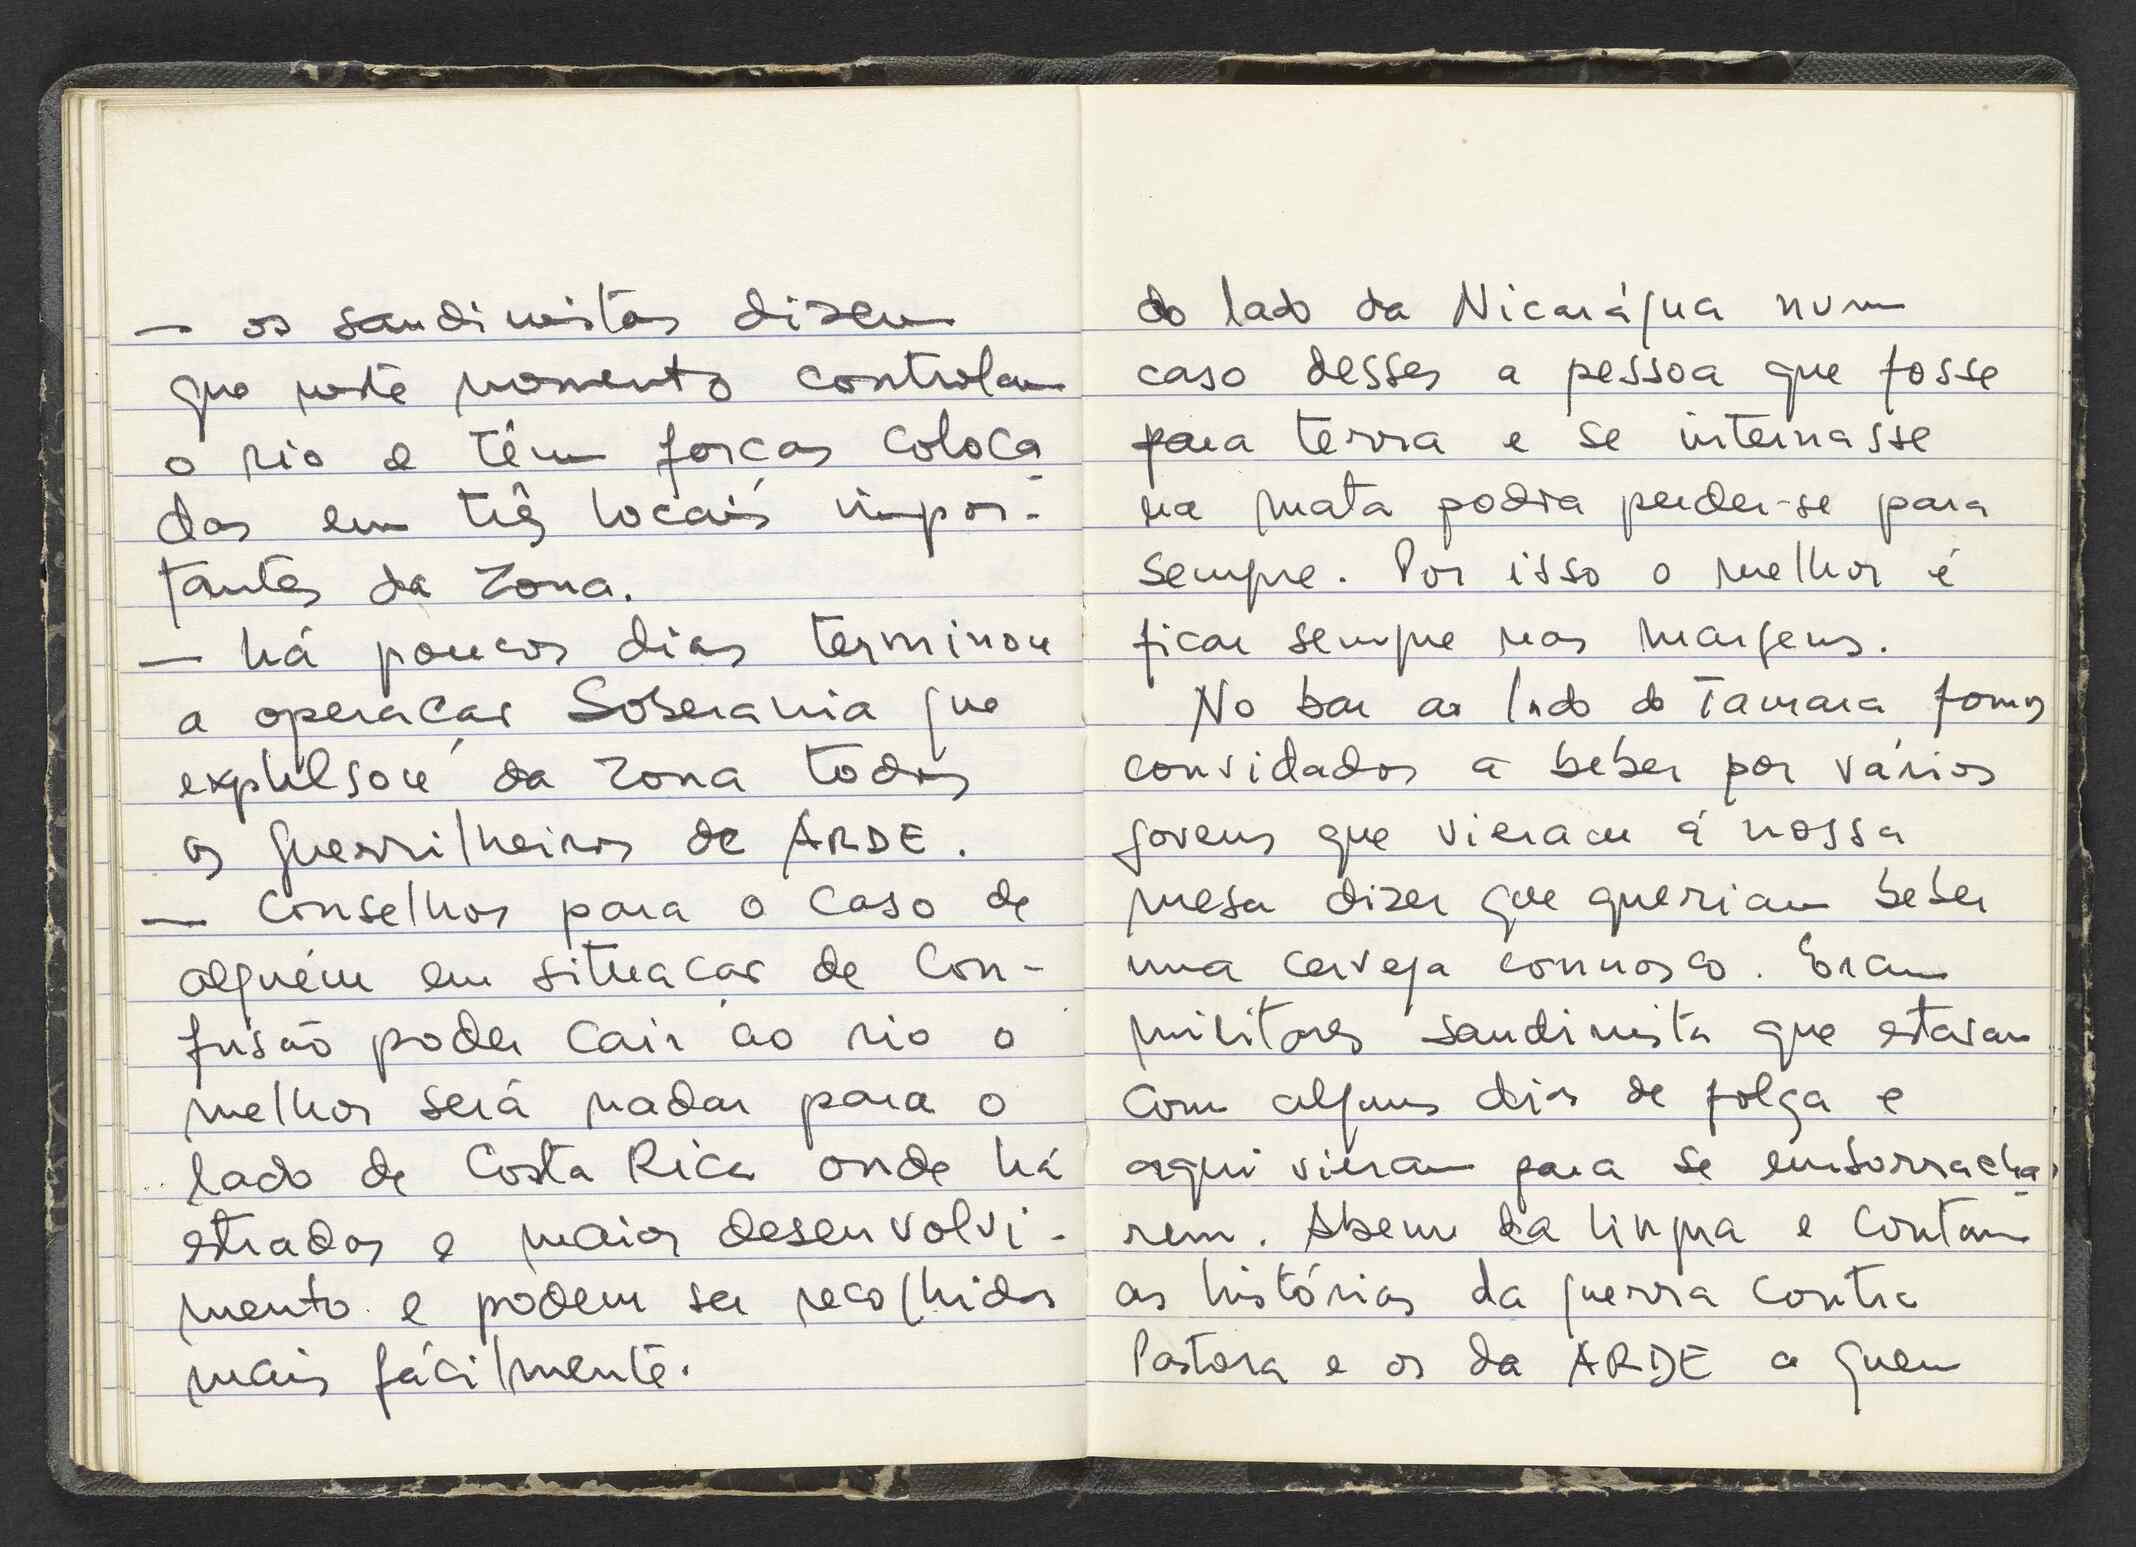 — os sandinistas dizem
que neste momento controlam
o rio e têm forças coloca-
das em três locais impor-
tantes da zona.
— há poucos dias terminou
a operação Soberania que
expulsou da zona todos
os guerrilheiros de ARDE.
— Conselhos para o caso de
alguém em situação de con-
fusão poder cair ao rio o
melhor será nadar para o
lado de Costa Rica onde há
estradas e maior desenvolvi-
mento e podem ser recolhidos
mais fácilmente.
do lado da Nicarágua num
caso desses a pessoa que fosse
para terra e se internasse
na mata podia perder-se para
sempre. Por isso o melhor é
ficar sempre nas margens.
No bar ao lado do Tamara fomos
convidados a beber por vários
jovens que vieram à nossa
mesa dizer que queriam beber
uma cerveja connosco. Eram
militares sandinista que estavam
com alguns dias de folga e
aqui vieram para se emborracha-
rem. Abem da lingua e contam
as histórias da guerra contra
Pastora e os da ARDE a quem